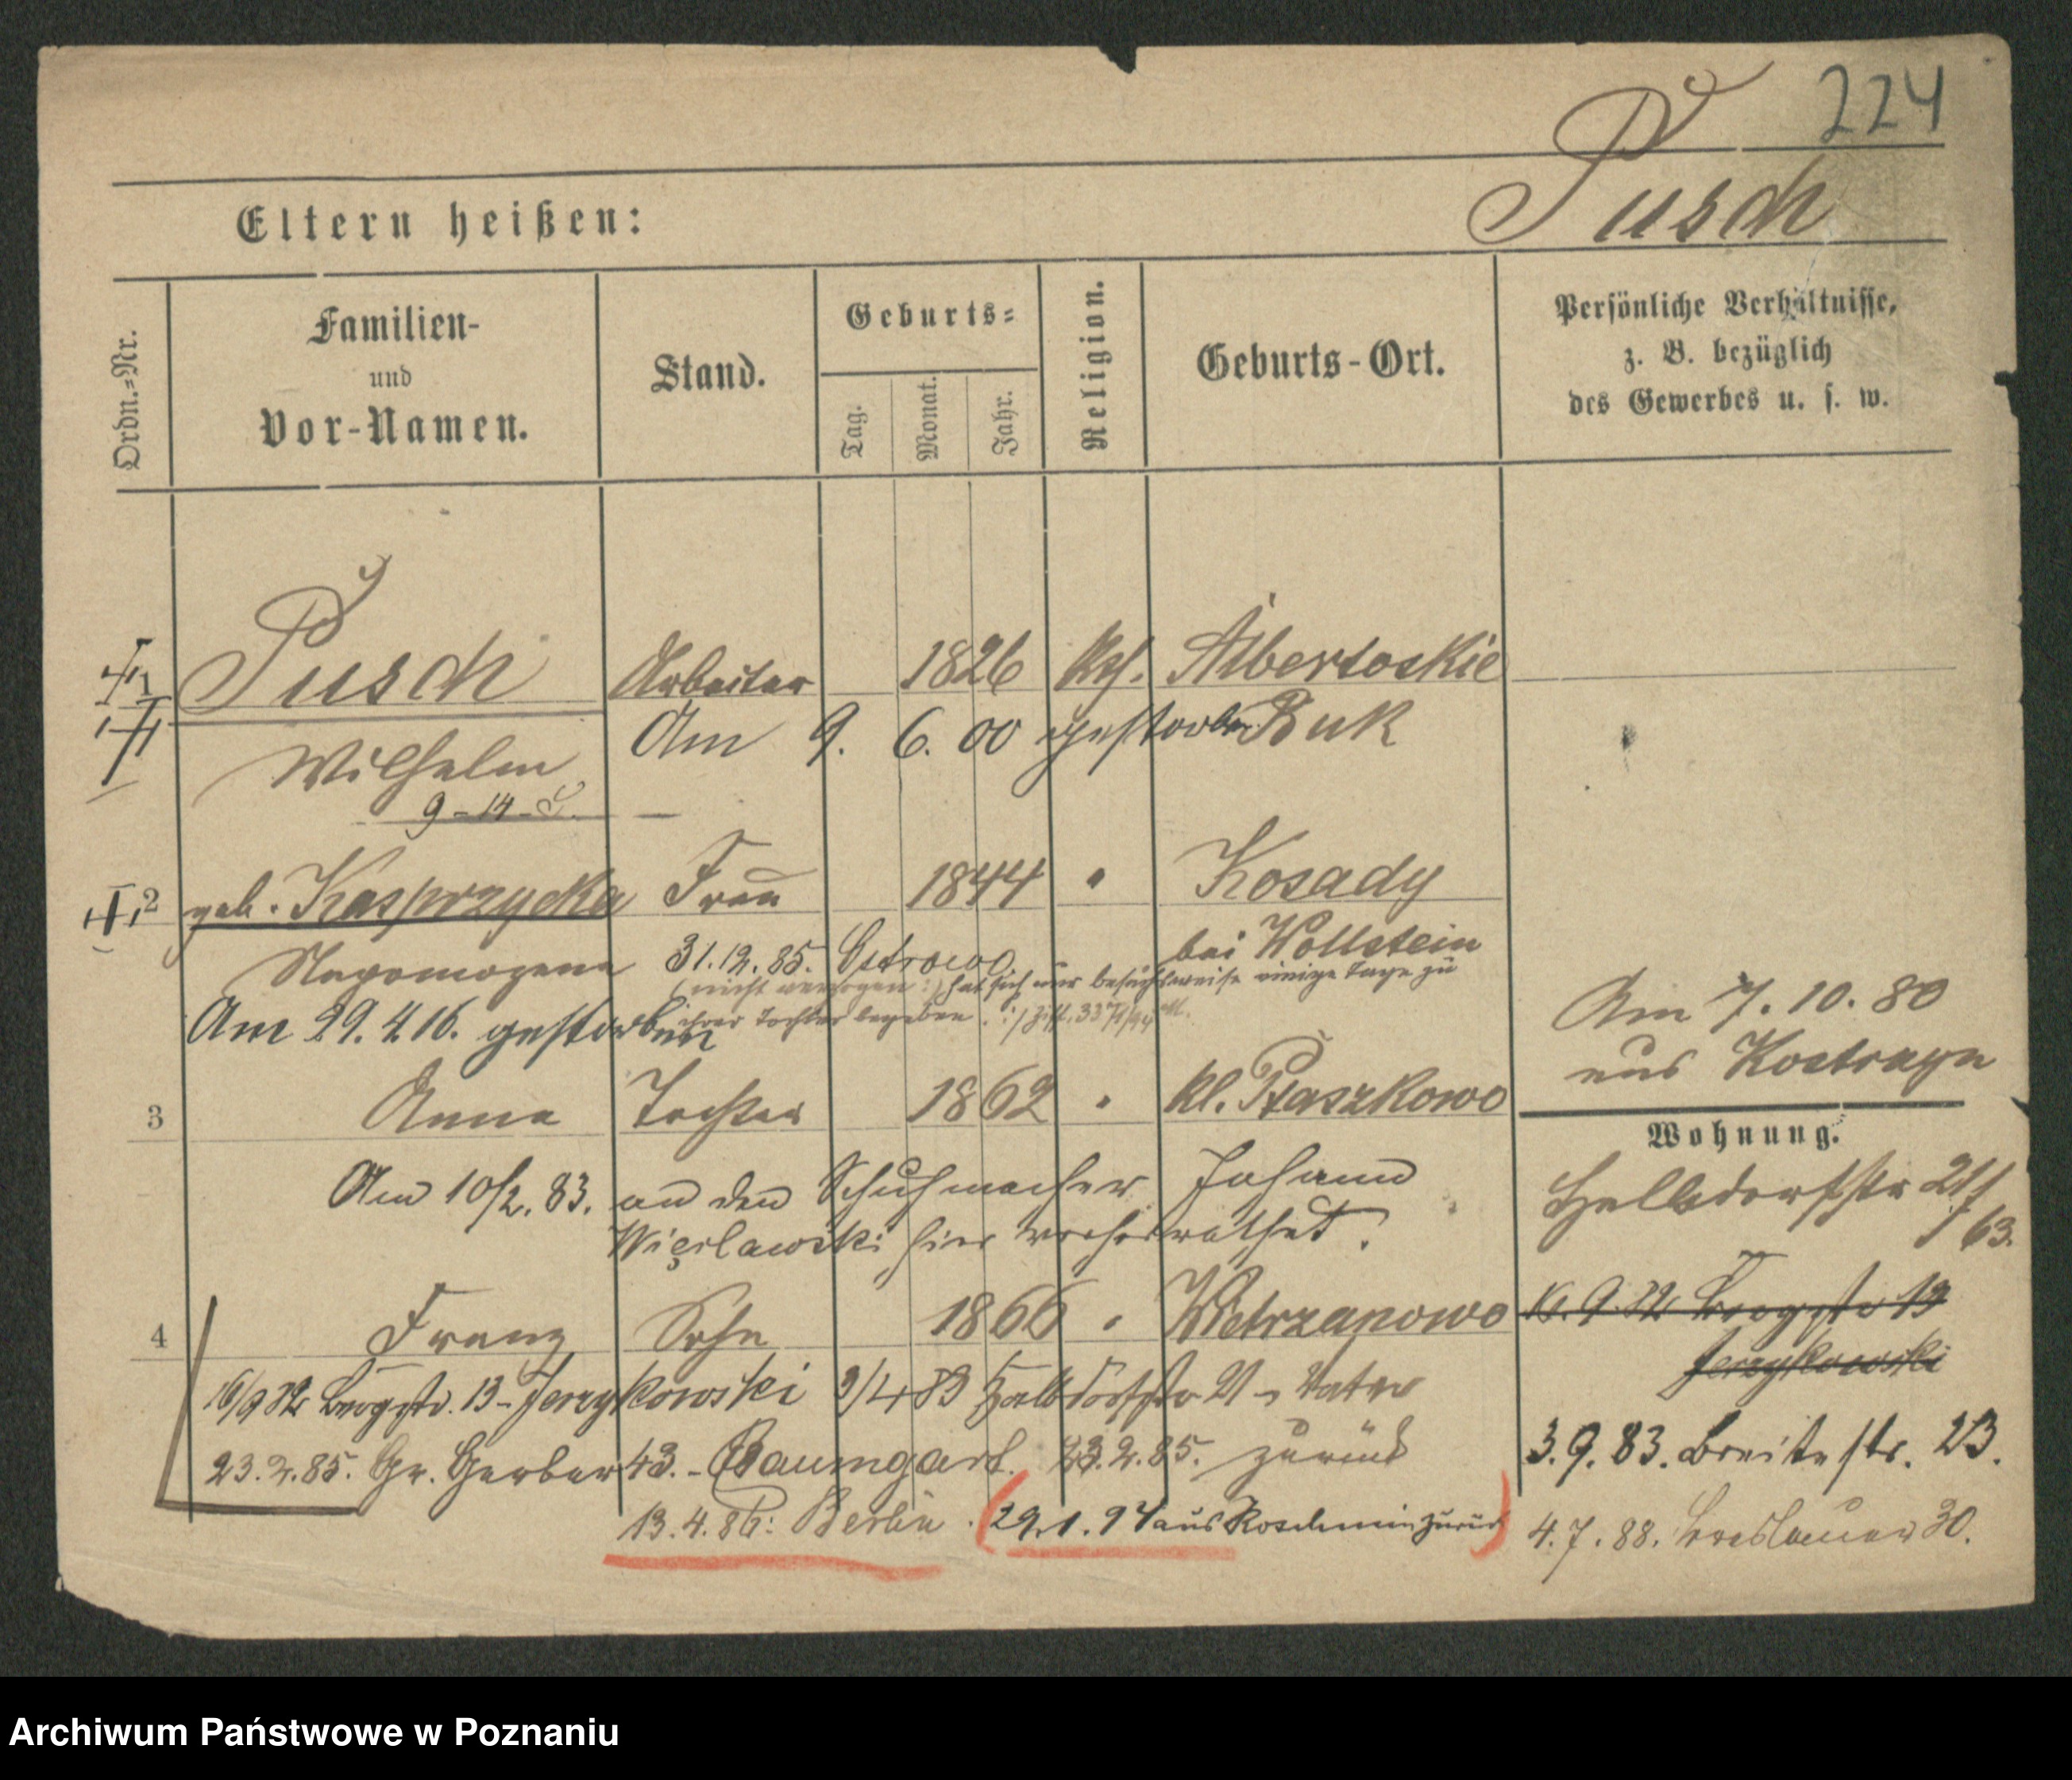 224
Pusch
Eltern heißen:
Ordn.=Nr.
Familien-
und
Vor-Namen.
Stand.
Geburts=
Tag.
Monat.
Jahr.
Religion.
Geburts-Ort.
Persönliche Verhältnisse,
z. B. bezüglich
des Gewerbes u. s. w.
1 Pusch Arbeiter 1826 Kth. Albertoskie
Wilhelm Am 9. 6. 00 gestorben Buk
9-14-
2 geb. Kasprzycka Frau 1844 " Kosady
bei Wollstein
Nepomozena 31.12.85. Ostrowo
(nicht verzogen :) hat sich nur besuchsweise einige Tage zu
ihrer Tochter begeben. :/
Am 29. 4 16. gestorben
Am 7. 10. 80
aus Kostrzyn
3 Anna Tochter 1862 " Kl. Ptaszkowo
Wohnung.
Am 10/2. 83. an den Schuhmacher Johann
Więclawski hier verheirathet.
Halbdorfstr 21/
63.
4 Franz Sohn 1866 " Wietrzanowo
16. 9. 82 Bergstr 13
Jerzykowski
16/9 82 Bergstr. 13 - Jerzykowski 3/4 83 Halbdorfstr 21 - Vater
23.2.85. Gr. Gerber 43. - Baumgart. 23.2.85. zurück
3.9.83. Breitestr. 23.
13.4.86: Berlin. (29.1.94 aus Koschmin zurück)
4.7.88. Breslauer 30.
Archiwum Państwowe w Poznaniu